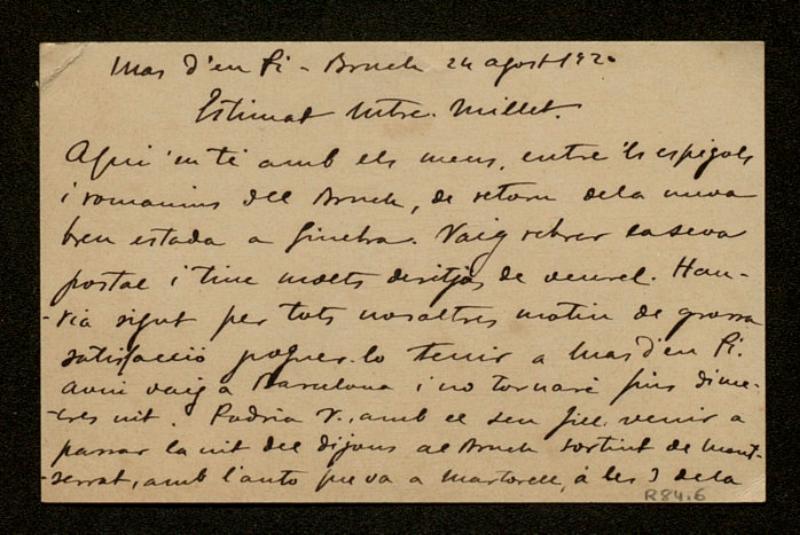 Mas d'en Pi - Bruch 24 agost 1920
Estimat Mtre. Millet.
Aqui 'm té amb els meus, entre 'ls espígols
i romanins del Bruch, de retorn dela meva
breu estada a Ginebra. Vaig rebrer la seva
postal i tinc molts desitjos de veurel. Hau-
-ria sigut per tots nosaltres motiu de grossa
satisfacció poguer-lo tenir a Mas d'en Pi.
Avui vaig a Barcelona i no tornaré fins dime-
-cres nit. Podria V., amb el seu fill, venir a
passar la nit del dijous al Bruch sortint de Mont-
-serrat, amb l'auto que va a Martorell, á les 3 dela
R84.6